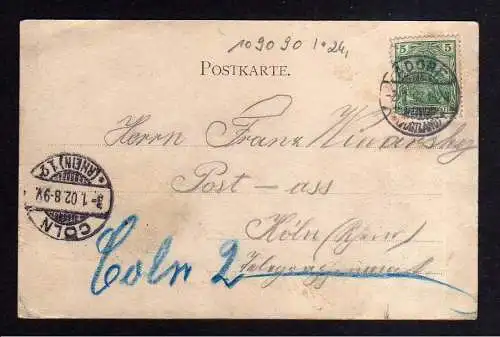 109090 1*24,
POSTKARTE.
5
DORF
(VOGTLAND)
Herrn Franz
Post-ass
Köln (Rhein)
Telegraphenamt
Coln 2
CÖLN
3-1.02.8-9V.
*(RHEIN)1.q.